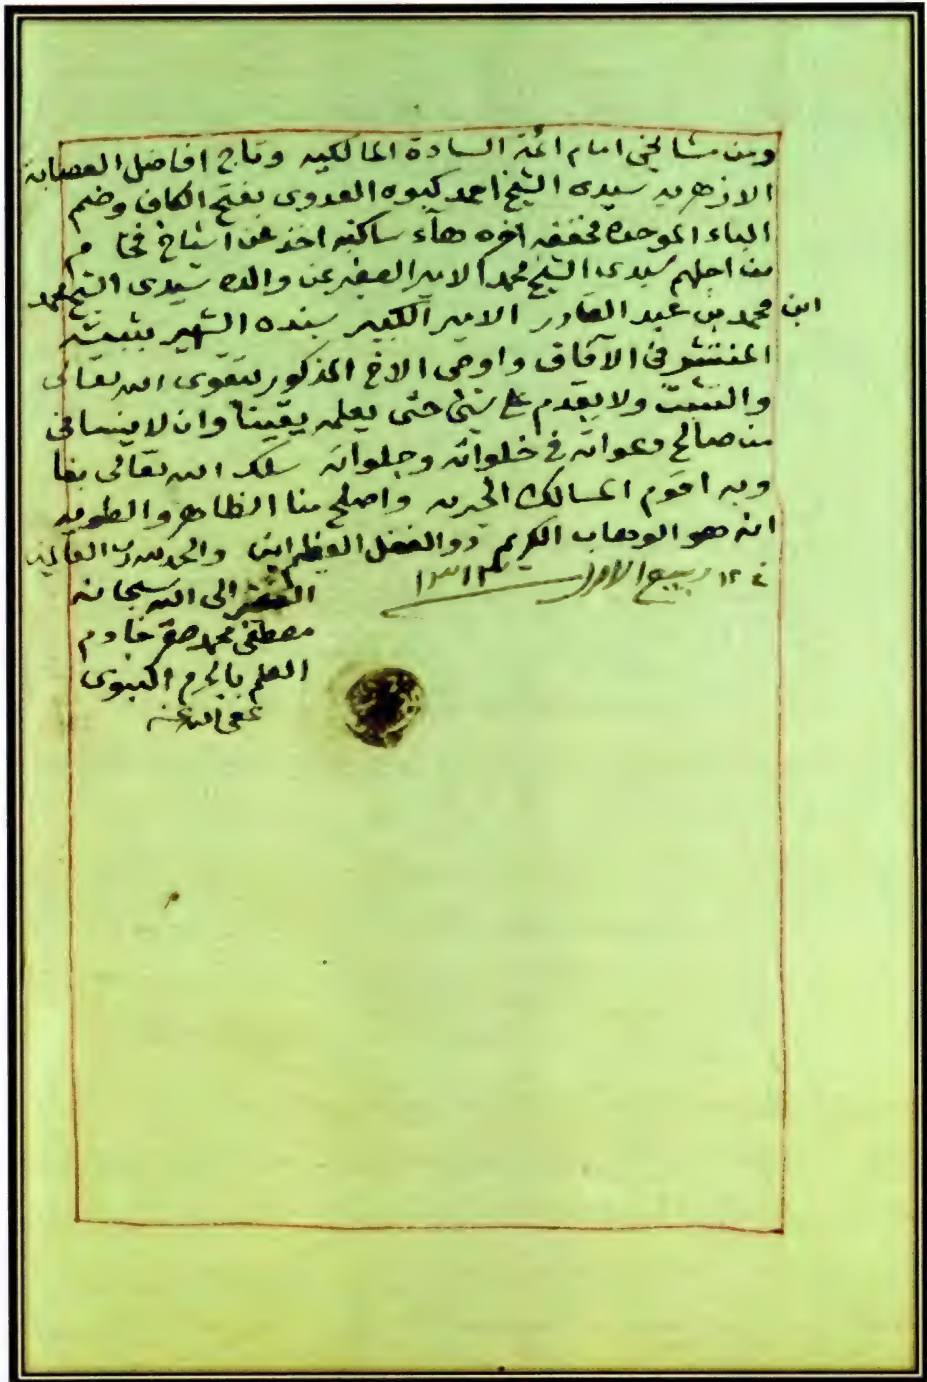 ومن مشايخي امام ائمة السادة المالكيه وتاج افاضل العصابة
الازهريه سيدى الشيخ احمد كبوه العدوى بفتح الكاف وضم
الباء الموحده مخففه اخره هاء ساكنه اخذ عن اشياخ
من اجلهم سيدى الشيخ محمد الامير الصغير عن والده سيدى الشيخ محمد
ابن محمد بن عبد القادر الامير الكبير بسنده الشهير بثبته
المنتشر فى الآفاق واوصى الاخ المذكور بتقوى الله تعالى
والتثبت ولا يقدم على شئ حتى يعلمه يقينا وان لا ينسانى
من صالح دعواته فى خلواته وجلواته سلك الله تعالى بنا
وبه اقوم المسالك الخيريه واصلح منا الظاهر والطويه
انه هو الوهاب الكريم ذو الفضل العظيم امين والحمد لله رب العالمين
فى ١٢ ربيع الاول ١٣١٣
الفقير الى الله سبحانه
مصطفى محمد صقر خادم
العلم بالحرم النبوى
عفى الله عنه